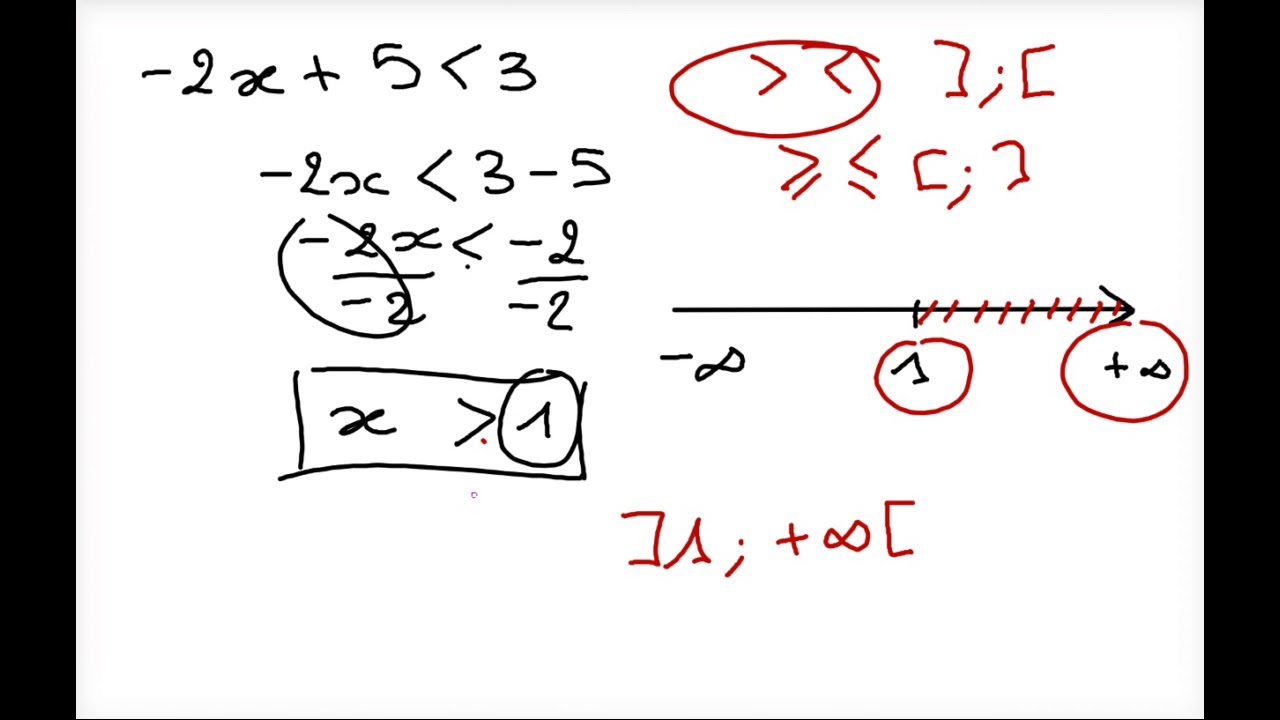 -2x + 5 < 3
-2x < 3 - 5
-2x < -2
-2 -2
x > 1
> < ] ; [
≥ ≤ [ ; ]
-∞ 1 +∞
]1 ; +∞[